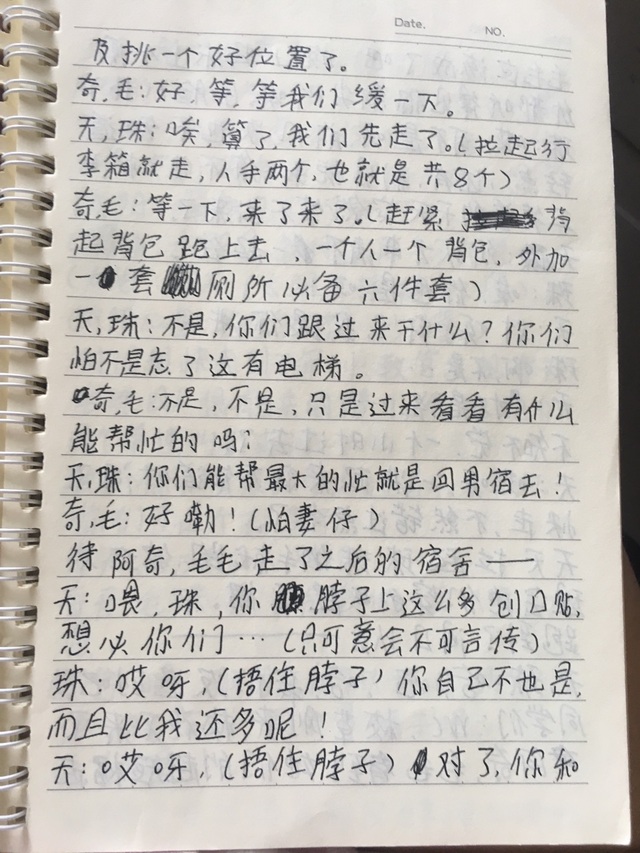 Date.
NO.
及挑一个好位置了。
奇,毛:好,等,等我们缓一下。
天,珠:唉,算了,我们先走了。(拉起行
李箱就走,人手两个,也就是共8个)
奇,毛:等一下,来了来了。(赶紧 背
起背包跑上去,一个人一个背包,外加
一套厕所必备六件套)
天,珠:不是,你们跟过来干什么?你们
怕不是忘了这有电梯。
奇,毛:不是,不是,只是过来看看有什么
能帮忙的吗?
天,珠:你们能帮最大的忙就是回男宿去!
奇,毛:好嘞!(怕妻仔)
待阿奇,毛毛走了之后的宿舍——
天:喂,珠,你脖子上这么多创口贴,
想必你们…(只可意会不可言传)
珠:哎呀,(捂住脖子)你自己不也是,
而且比我还多呢!
天:哎呀,(捂住脖子)对了,你和